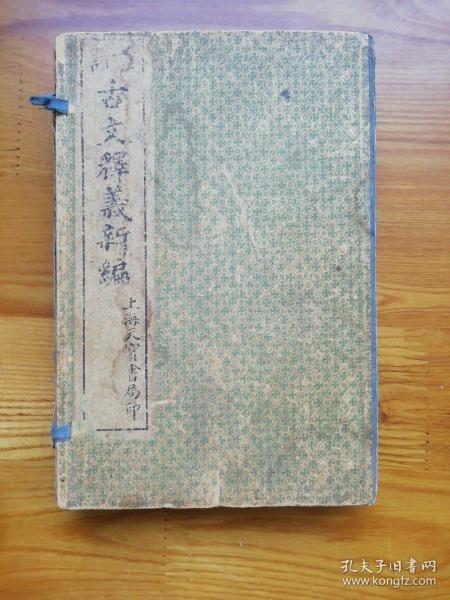 古文釋義新編
上海天寶書局印
孔夫子旧书网
www.kongfz.com